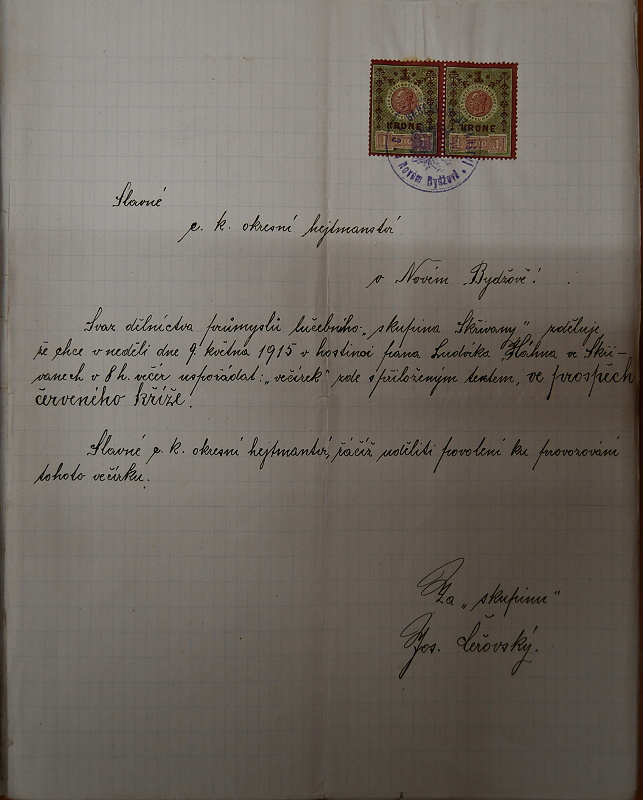 1 1
KRONE KRONE
Novém Bydžově
Slavné
c. k. okresní hejtmanství
v Novém Bydžově!
Svaz dělnictva průmyslů lučebního „skupina Skřivany" zděluje
že chce v neděli dne 9. května 1915 v hostinci pana Ludvíka Háhna ve Skři-
vanech v 8 h. večer uspořádat: „večírek" zde s přiloženým textem, ve prospěch
červeného kříže.
Slavné c. k. okresní hejtmantví, račiž uděliti povolení ku provozování
tohoto večírku.
Za „skupinu"
Jos.